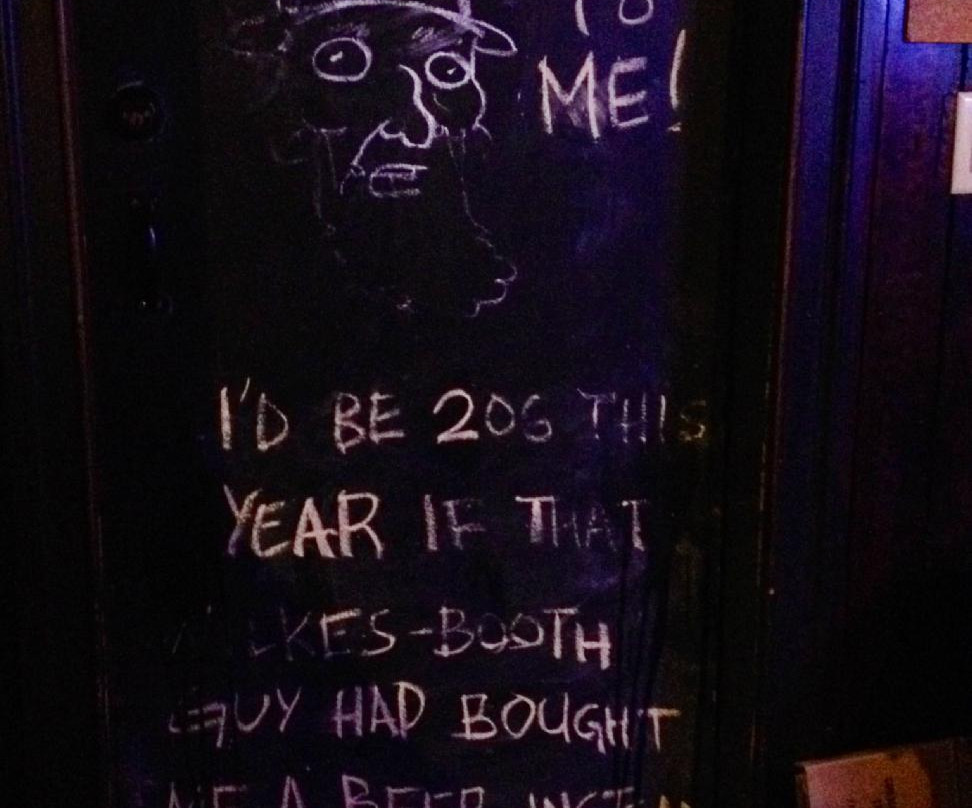 TO
ME!
I'D BE 206 THIS
YEAR IF THAT
WILKES-BOOTH
GUY HAD BOUGHT
ME A BEER INSTEAD